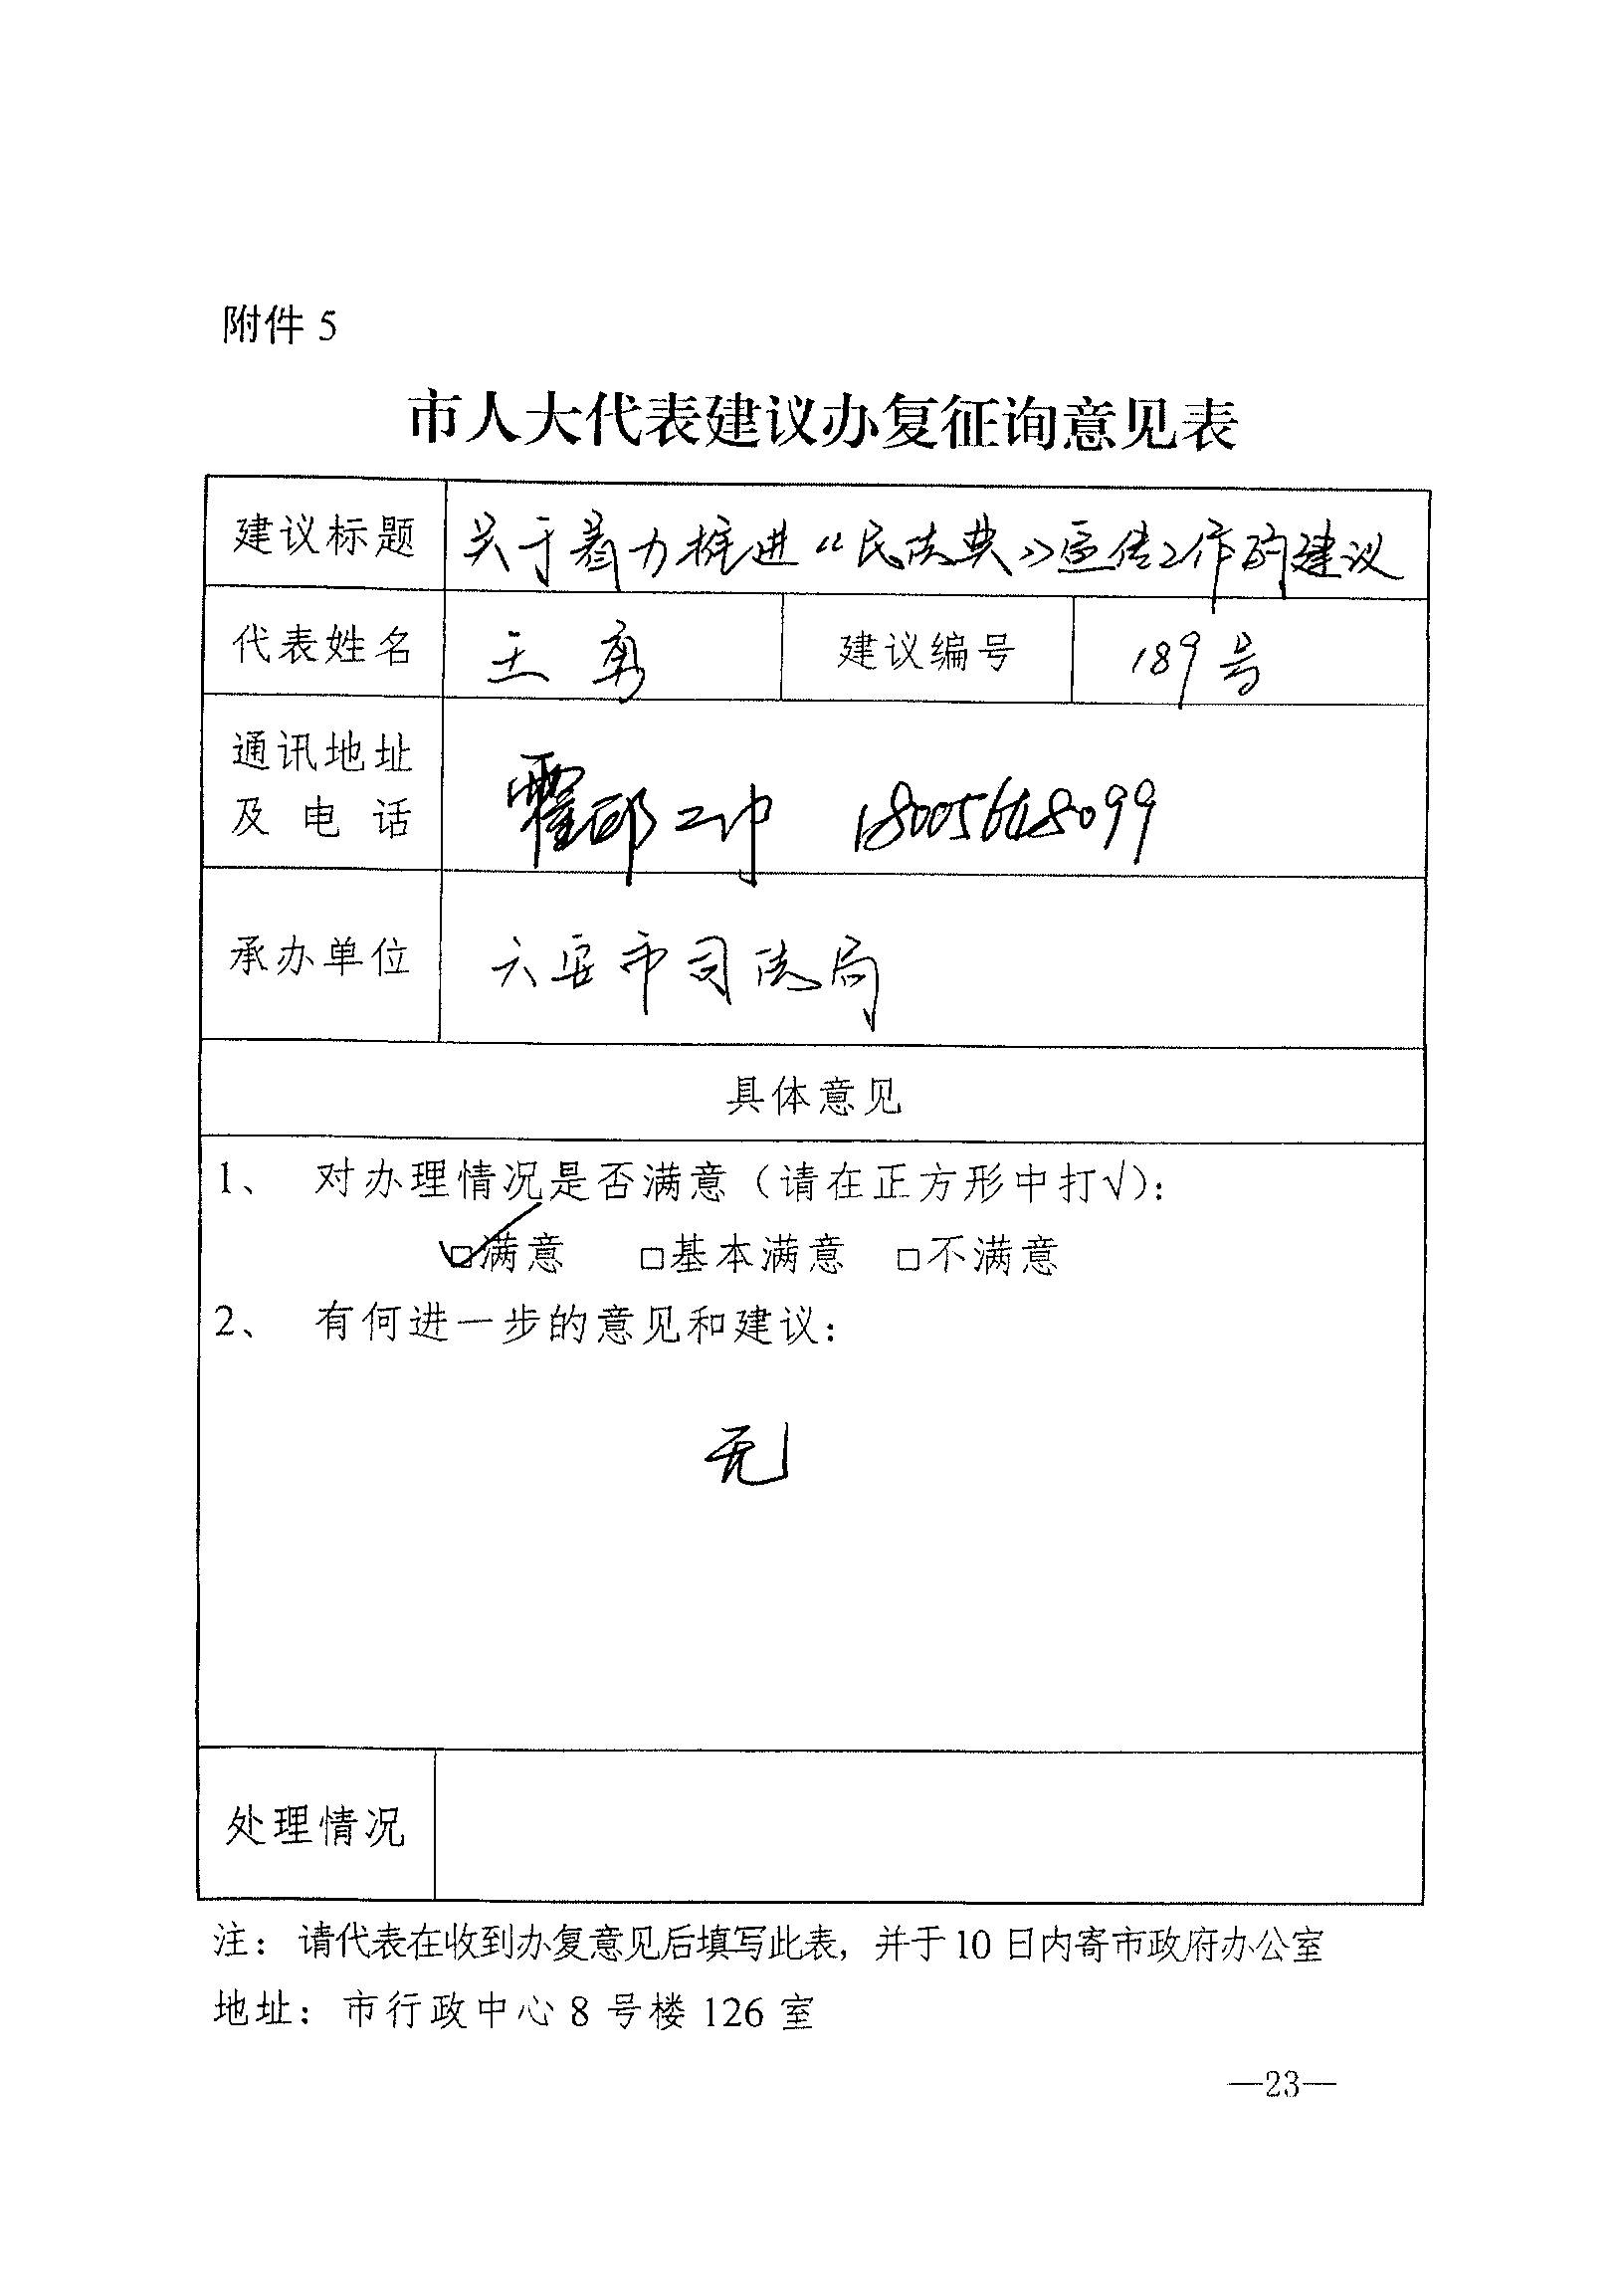 附件 5
市人大代表建议办复征询意见表
建议标题 关于着力推进《民法典》宣传工作的建议
代表姓名 王勇 建议编号 189号
通讯地址
及电话 霍邱二中
承办单位 六安市司法局
具体意见
1、 对办理情况是否满意（请在正方形中打√）：
☑满意 □基本满意 □不满意
2、 有何进一步的意见和建议：
无
处理情况
注：请代表在收到办复意见后填写此表，并于10日内寄市政府办公室
地址：市行政中心 8 号楼 126 室
—23—